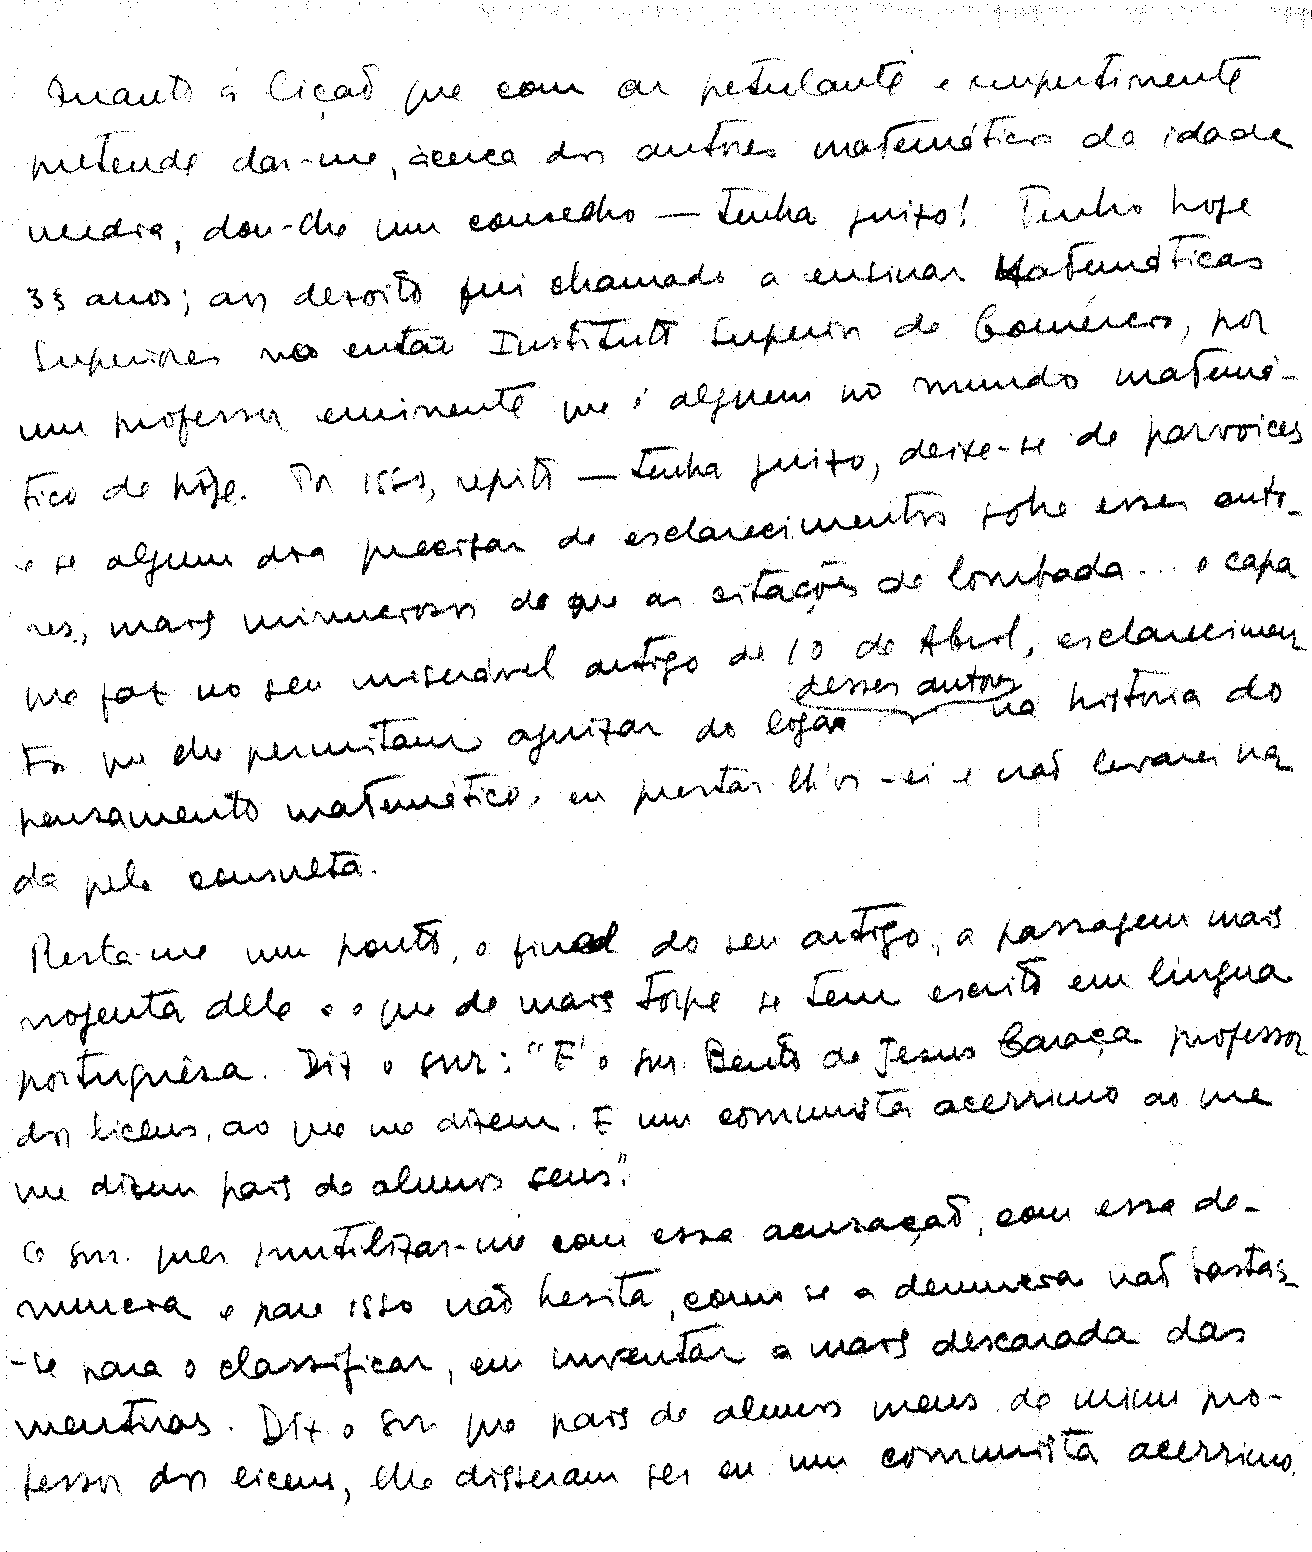 Quanto á lição que com ar petulante e impertinente
pretende dar-me, ácerca dos autores matemáticos da idade
media, dou-lhe um conselho — tenha juizo! Tenho hoje
33 anos; aos dezoito fui chamado a ensinar Matemáticas
Superiores no então Instituto Superior de Comércio, por
um professor eminente que é alguem no mundo matemá-
tico de hoje. Por isso, repito — tenha juizo, deixe-se de parvoices
e se algum dia precisar de esclarecimentos sobre esses auto-
res, mais minuciosos do que as citações de lombada... e capa
que faz no seu miserável artigo de 10 de Abril, esclarecimen
tos que lhe permitam ajuizar do logar desses autores na história do
pensamento matemático, eu prestar lh'os-ei e não levarei na
da pela consulta.
Resta-me um ponto, o final do seu artigo, a passagem mais
nojenta dele e o que de mais torpe se tem escrito em lingua
portuguêsa. Diz o snr: "É o snr. Bento de Jesus Caraça professor
dos liceus, ao que me dizem. E um comunista acerrimo ao que
me dizem pais de alunos seus".
O snr. quer inutilizar-me com essa acusação, com essa de-
nuncia e para isso não hesita, como se a denuncia não bastas-
-se para o classificar, em inventar a mais descarada das
mentiras. Diz o Snr. que pais de alunos meus de mim pro-
fessor dos liceus, lhe disseram ser eu um comunista acerrimo.